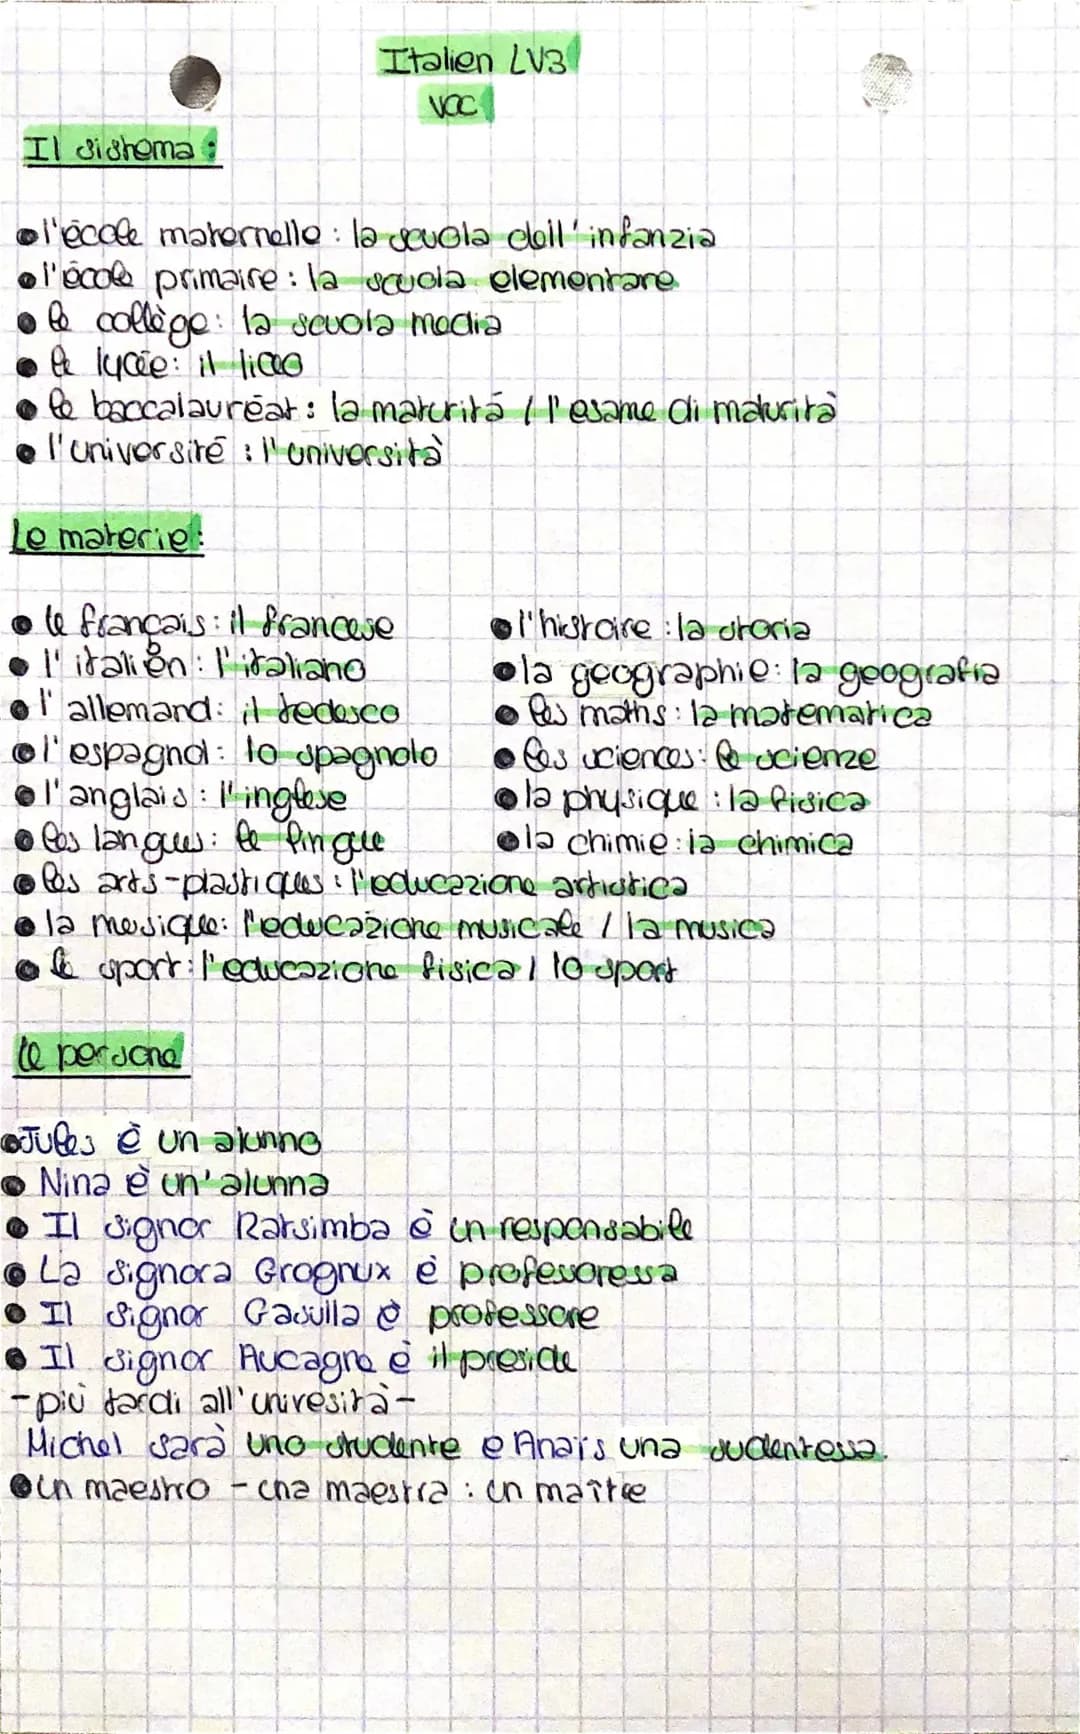 Italien LV3
VOC
Il sistema :
l'école maternelle : la scuola dell'infanzia
l'école primaire : la scuola elementare
le collège : la scuola media
le lycée : il liceo
le baccalauréat : la maturitá / l'esame di maturità
l'université : l'università
Le materie :
le français : il francese
l'italien : l'italiano
l'allemand : il tedesco
l'espagnol : lo spagnolo
l'anglais : l'inglese
les langues : le lingue
l'histoire : la storia
la geographie : la geografia
les maths : la matematica
les sciences : le scienze
la physique : la fisica
la chimie : la chimica
les arts-plastiques : l'educazione artistica
la musique : l'educazione musicale / la musica
le sport : l'educazione fisica / lo sport
le persone
Jules è un alunno
Nina è un'alunna
Il signor Ratsimba è un responsabile
La signora Grognux è professoressa
Il signor Gasulla è professore
Il signor Aucagne è il preside
- più tardi all'univesità -
Michel sarà uno studente e Anaïs una sudentessa.
un maestro - una maestra : un maître